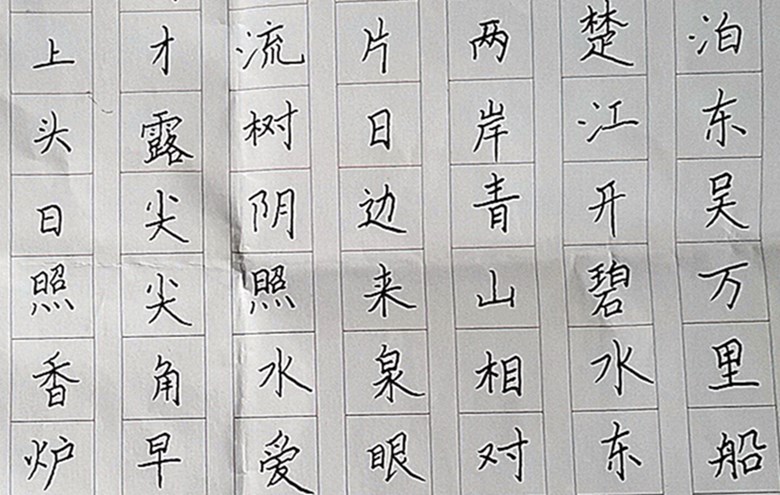 泊东吴万里船
楚江开碧水东
两岸青山相对
片日边来泉眼
流树阴照水爱
才露尖尖角早
上头日照香炉